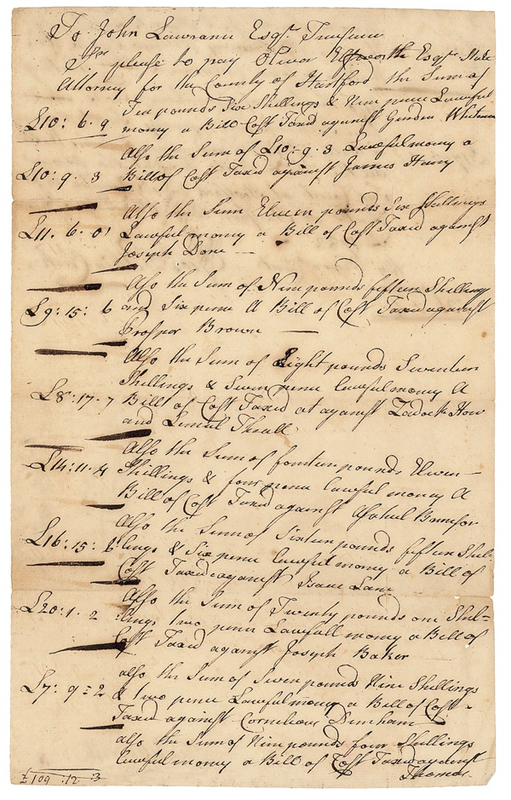 To John Lawrance Esqr Treasurer
Sr please to pay Oliver Elsworth Esqr State
Attorney for the County of Hartford the Sum of
Ten pounds Six Shillings & Nine pence Lawful
£10: 6. 9 money a Bill Cost Taxd against Gurdon Whitmore
Also the Sum of £10: 9. 3 Lawful mony a
£10: 9. 3 Bill of Cost Taxd against James Huny
Also the Sum Eleven pounds Six Shillings
£11. 6. 0 Lawful mony a Bill of Cost Taxd against
Joseph Done
Also the Sum of Nine pounds fifteen Shillings
£9: 15: 6 and Six pence A Bill of Cost Taxd against
Prosper Brown
Also the Sum of Eight pounds Seventeen
Shillings & Seven pence lawful money A
£8: 17. 7 Bill of Cost Taxd at against Zadock How
and Lemuel Thrall
Also the Sum of fourteen pounds Eleven
£14: 11. 4 Shillings & four pence lawful money A
Bill of Cost Taxd against
Also the Sum of Sixteen pounds fifteen Shil-
£16: 15: 6 lings & Six pence lawful money a Bill of
Cost Taxd against Isaac Lane
Also the Sum of Twenty pounds one Shil-
£20: 1. 2 lings two pence Lawfull money a Bill of
Cost Taxd against Joseph Baker
also the Sum of Seven pounds Nine Shillings
£7: 9 = 2 & two pence Lawful mony a Bill of Cost
Taxd against Cornelious Dunham
also the Sum of Nine pounds four Shillings
lawful money a Bill of Cost Taxd against
£109. 12. 3 Thomas